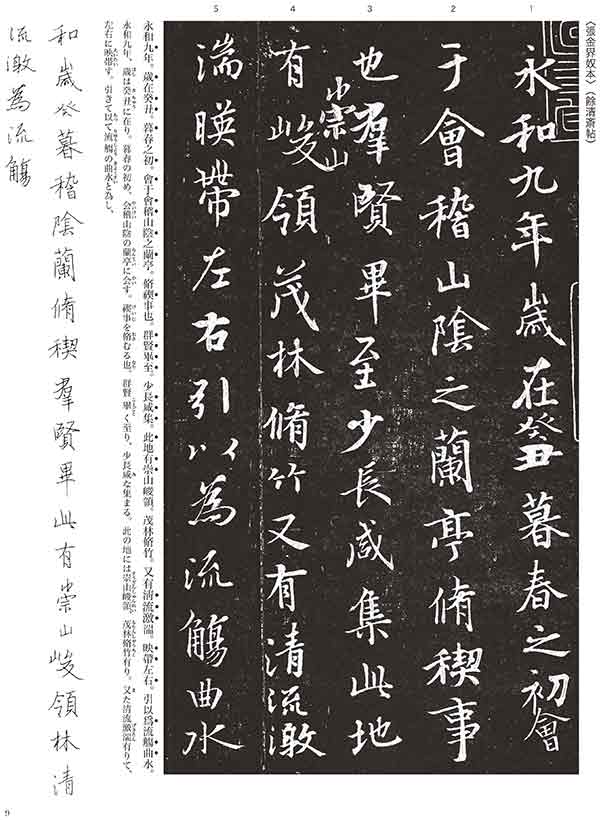 〈張金界奴本〉〈餘清斎帖〉
1
2
3
4
5
永和九年歲在癸丑暮春之初會
于會稽山陰之蘭亭脩稧事
也羣賢畢至少長咸集此地
有崇山峻領茂林脩竹又有清流激
湍暎帶左右引以為流觴曲水
永和九年。歳在癸丑。暮春之初。會于會稽山陰之蘭亭。脩禊事也。群賢畢至。少長咸集。此地有崇山峻領。茂林脩竹。又有清流激湍。映帶左右。引以爲流觴曲水。
永和九年、歳は癸丑に在り。暮春の初め、会稽山陰の蘭亭に会す。禊事を脩むる也。群賢畢く至り、少長咸な集まる。此の地には崇山峻領、茂林脩竹有り。又た清流激湍有りて、
左右に映帯す。引きて以て流觴の曲水と為し、
和歲癸暮稽陰蘭脩稧羣賢畢此有崇山峻領林清
流激為流觴
9